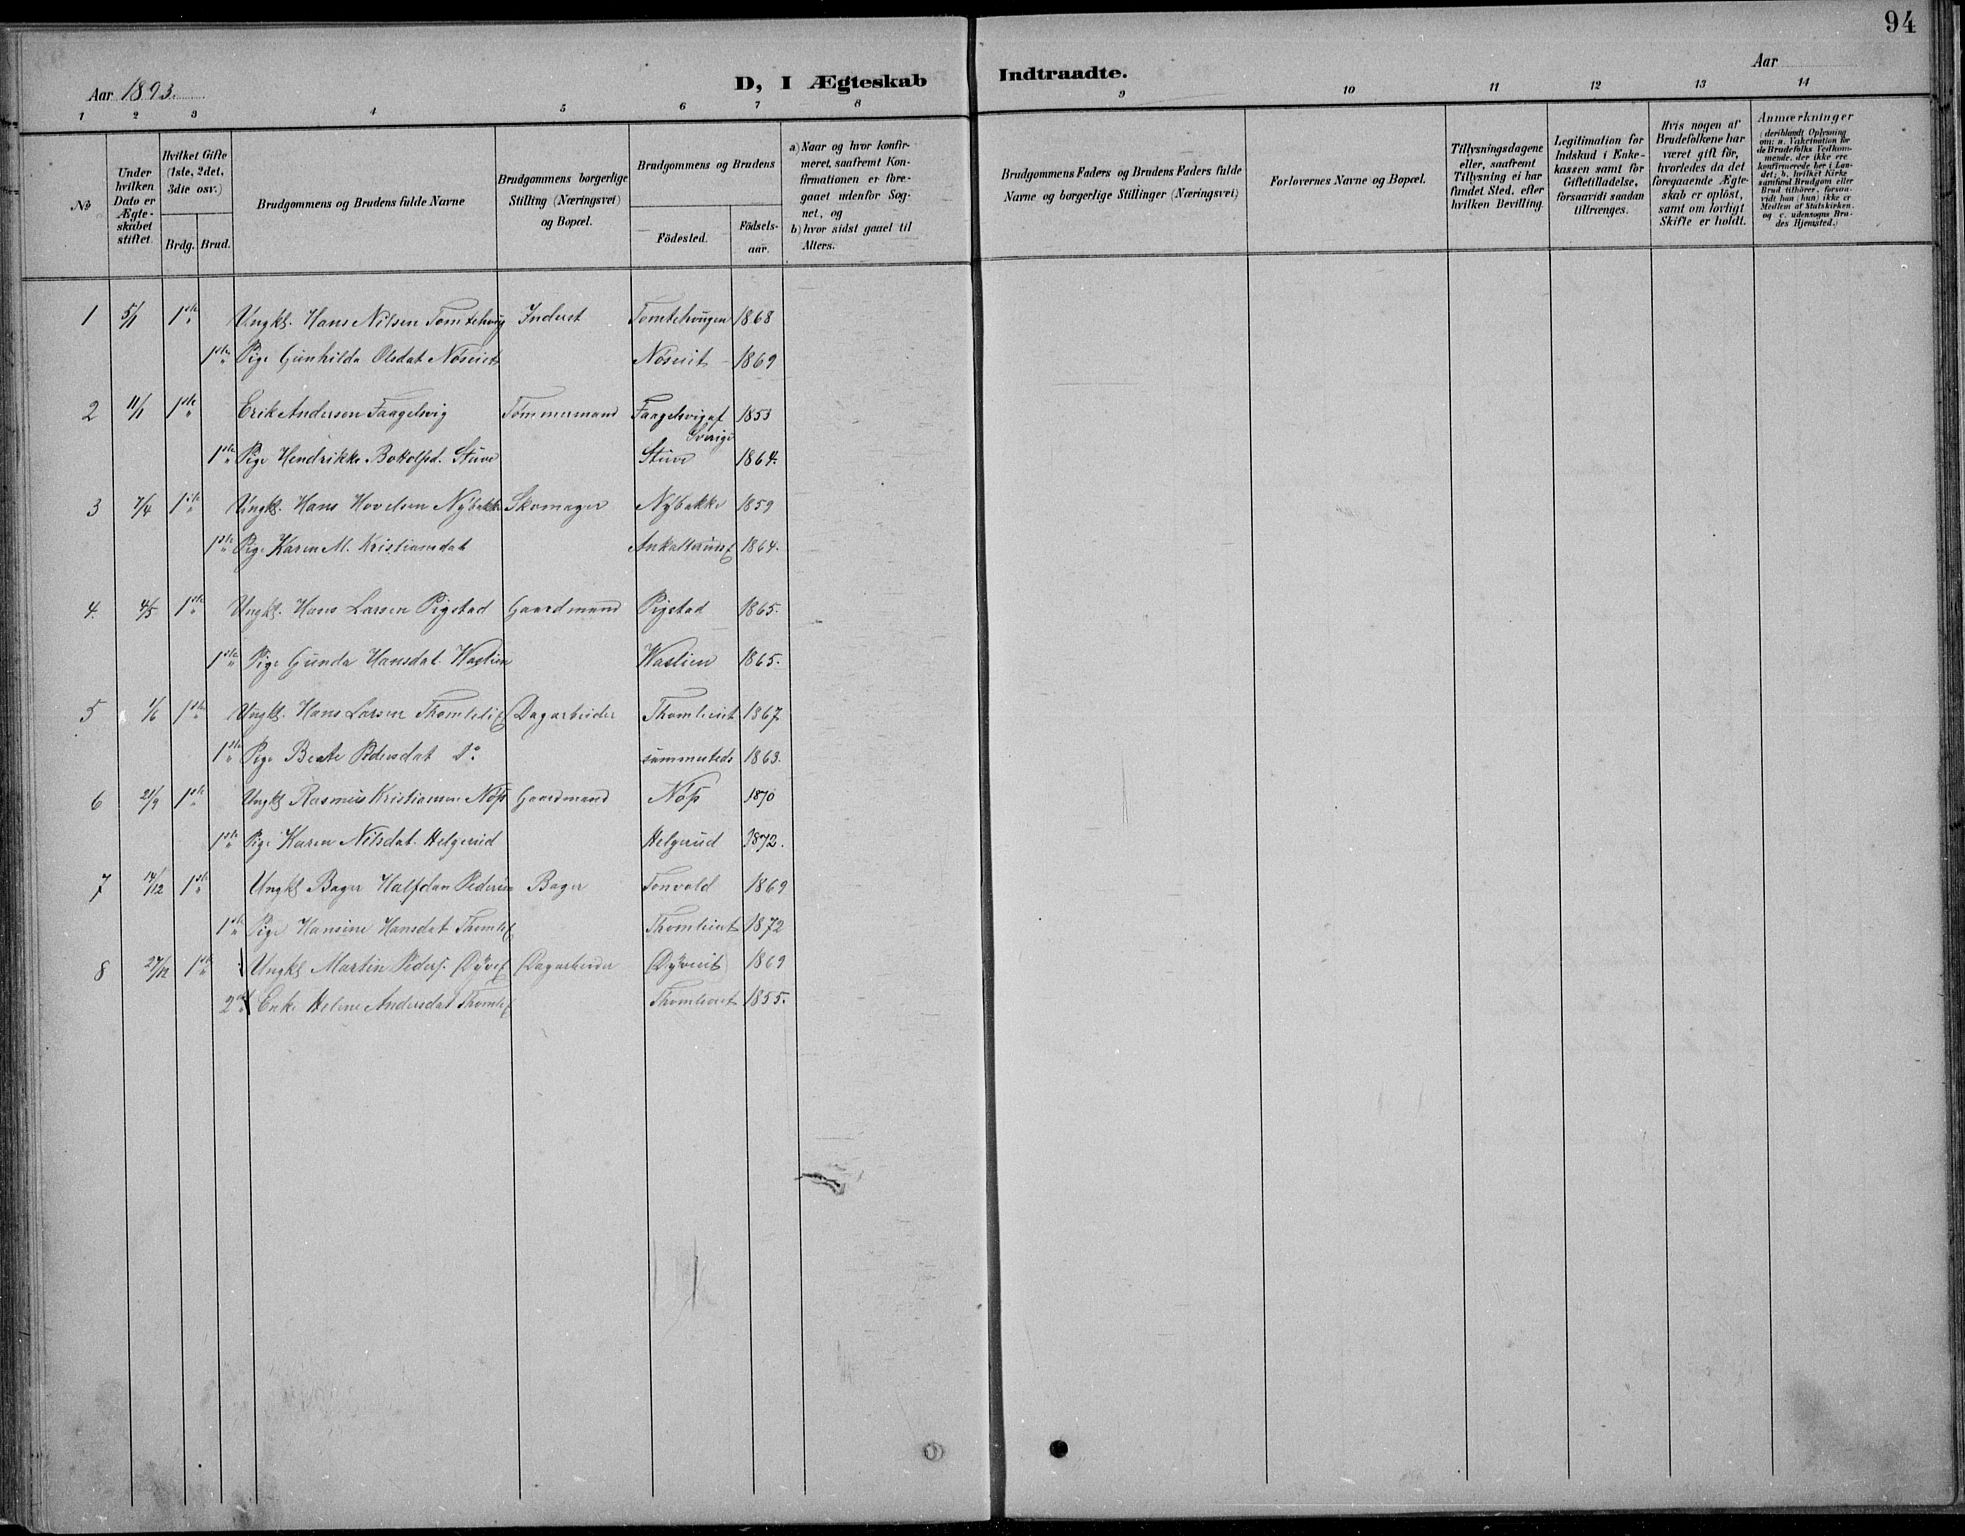 94
D, I Ægteskab Indtraadte.
Aar 1893. Aar
1 2 3 4 5 6 7 8 9 10 11 12 13 14
No
Under hvilken Dato er Ægteskabet stiftet.
Hvilket Gifte (1ste, 2det, 3die osv.)
Brdg. Brud.
Brudgommens og Brudens fulde Navne
Brudgommens borgerlige Stilling (Næringsvei) og Bopæl.
Brudgommens og Brudens
Födested. Födsels-aar.
a) Naar og hvor konfirmeret, saafremt Konfirmationen er foregaaet udenfor Sognet, og
b) hvor sidst gaaet til Alters.
Brudgommens Faders og Brudens Faders fulde Navne og borgerlige Stillinger (Næringsvei)
Forlovernes Navne og Bopæl.
Tillysningsdagene eller, saafremt Tillysning ei har fundet Sted, efter hvilken Bevilling.
Legitimation for Indskud i Enkekassen samt for Giftetilladelse, forsaavidt saadan tiltrænges.
Hvis nogen af Brudefolkene har været gift för, hvorledes da det foregaaende Ægteskab er oplöst, samt om lovligt Skifte er holdt.
Anmærkninger (deriblandt Oplysning om: a. Vakcination for de Brudefolks Vedkommende, der ikke ere konfirmerede her i Landet; b. hvilket Kirkesamfund Brudgom eller Brud tilhörer, forsaavidt han (hun) ikke er Medlem af Statskirken, og c. udensogns Brudes Hjemsted.)
1 5/1 1ste Ungkl. Hans Nilsen Tomtehoug Inderst Tomtehougen 1868
1ste Pige Gunhilda Olsdat Nöseiet Nöseiet 1869
2 11/1 1ste Erik Andersen Faagelsvig Tömmermand Faagelsvig af Sverige 1853
1ste Pige Hendrikke Bottolfsd. Stuve Stuve 1864.
3 7/4 1ste Ungkl. Hans Hovelsen Nybakke Skomager Nybakke 1859
1ste Pige Karen M. Kristiansdat 1864.
4. 4/5 1ste Ungkl. Hans Larsen Pigstad Gaardmand Pigstad 1865.
1ste Pige Gunda Hansdat Waslien Waslien 1865.
5 1/6 1ste Ungkl. Hans Larsen Dagarbeider Thomleiet 1867
1ste Pige Beate Pedersdat Do. sammesteds 1863.
6 21/9 1ste Ungkl Rasmus Kristiansen Nöss Gaardmand Nöss 1870
1ste Pige Karen Nilsdat. Helgerud Helgerud 1872.
7 14/12 1ste Ungkl Bager Halfdan Pedersen Bager Tonvold 1869
1ste Pige Hansine Hansdat Thomlei Thomleiet 1872
8 27/12 1ste Ungkl Martin Peders. Dyvei Dagarbeider Dyveiet 1869
2det Enke Helene Andersdat Thomlei Thomleiet 1855.